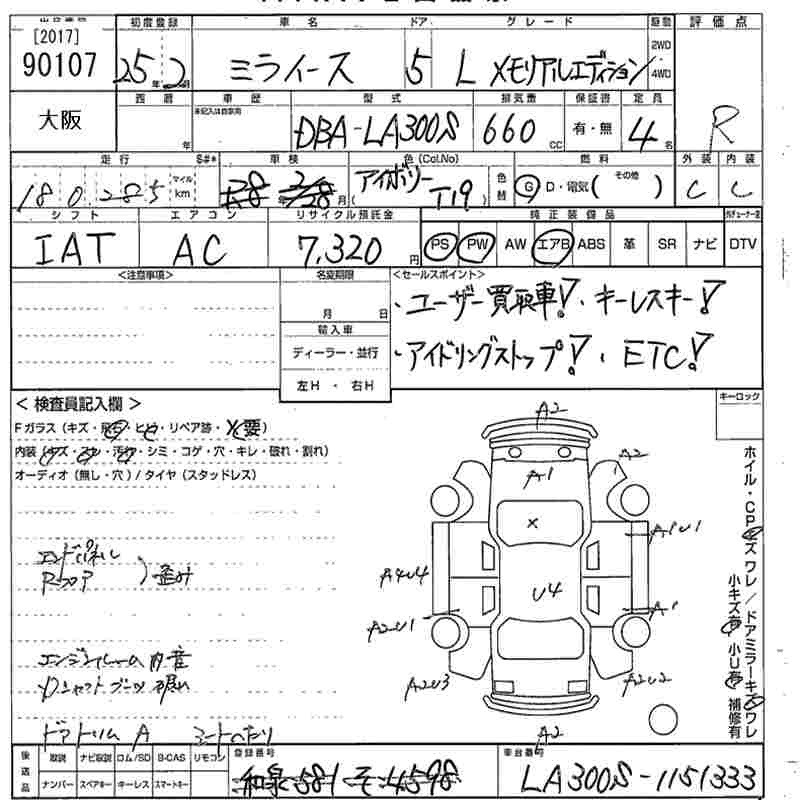 出品番号 初度登録 車名 ドア グレード 駆動 評価点
[2017]
90107 25年 2月 ミライース 5 L メモリアルエディション 2WD・4WD R
大阪 西暦 年 車歴 未記入は自家用 型式 DBA-LA300S 排気量 660 cc 保証書 有・無 定員 4名
走行 S#* 車検 色(Col.No) 色替 燃料 外装 内装
180,285 マイル km 28年 2/28月 アイボリー T19 G D・電気 (その他) C C
シフト エアコン リサイクル預託金 純正装備品
IAT AC 7,320円 PS PW AW エアB ABS 革 SR ナビ DTV
<注意事項> 名変期限 <セールスポイント>
月 日 ・ユーザー買取車! ・キーレスキー!
輸入車
ディーラー・並行 ・アイドリングストップ! ・ETC!
左H・右H
<検査員記入欄> キーロック
Fガラス(キズ・飛石・ヒビ・リペア跡・X要)
内装(キズ・スレ・汚れ・シミ・コゲ・穴・キレ・破れ・割れ)
オーディオ(無し・穴)/タイヤ(スタッドレス)
エンドパネル
Rフロア ) 歪み
エンジンルーム内音
Dシャフトブーツ破れ
ドアトリムA シートへたり
A2
A1 A2
X A1U1
A4U4 U4
A2U1 A1
A2U3 A2U2
A2
ホイル・CPキズ ワレ/ドアミラーキズ ワレ
小キズ有 小U有 補修有
後送品 取説 ナビ取説 ロム/SD B-CAS リモコン 登録番号 車台番号
ナンバー スペアキー キーレス スマートキー 和泉 581 そ 4598 LA300S-1151333